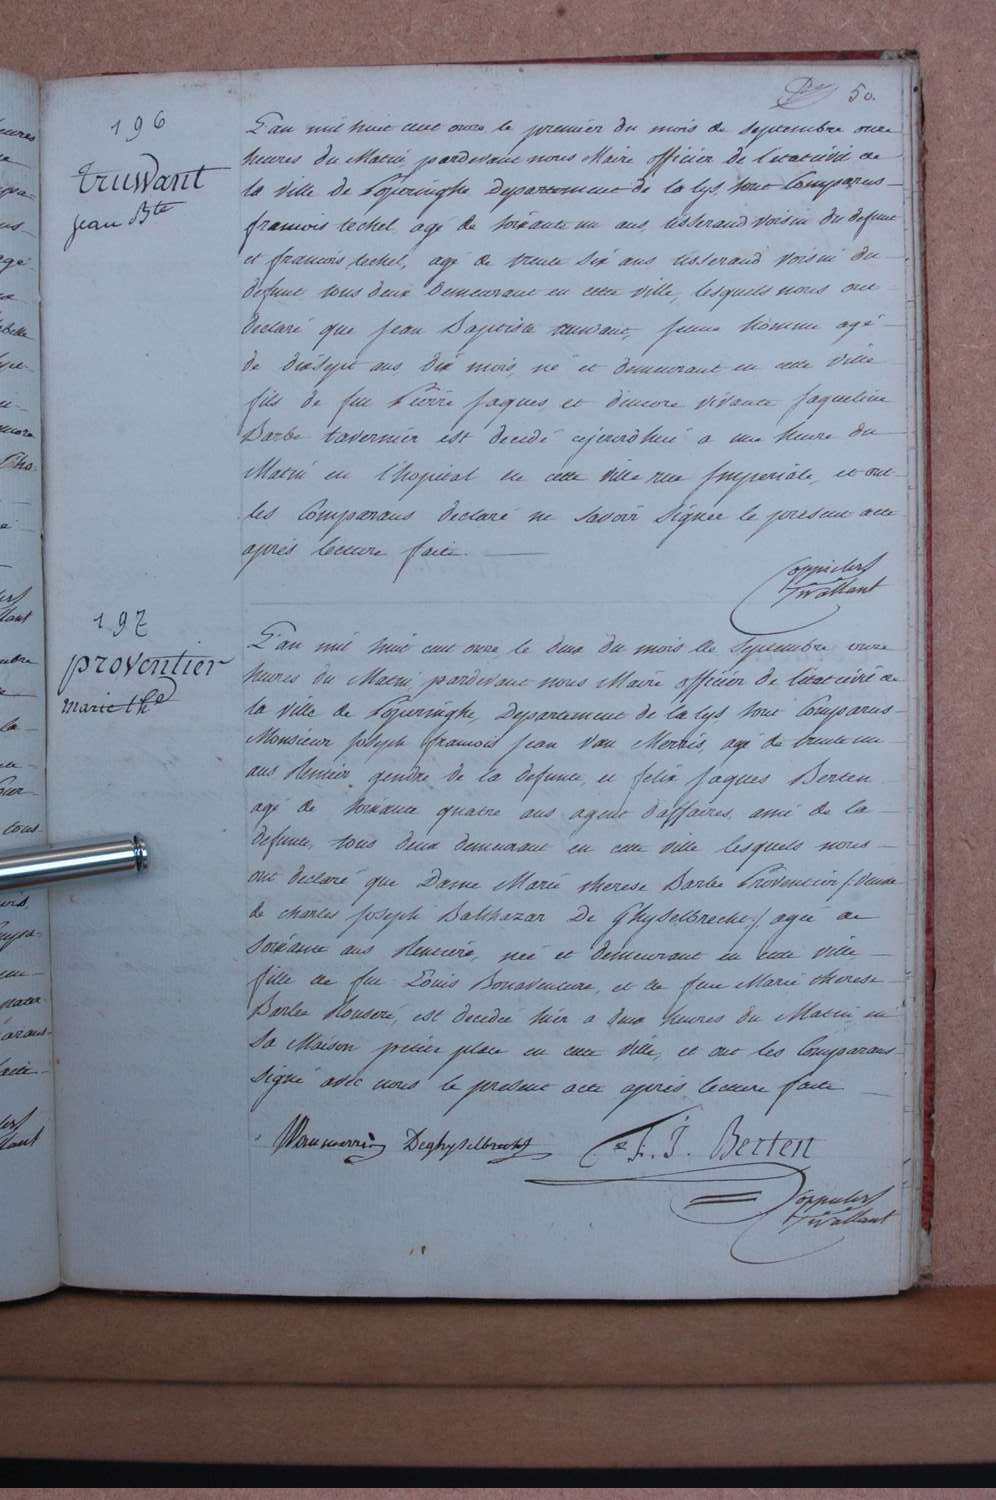 50.
196
truwant
jean Bte
L'an mil huit cent onze le premier du mois de septembre onze
heures du Matin pardevant nous Maire officier de l'etat civil de
la ville de Poperinghe Departement de la lys, sont Comparus
francois techel agé de soixante un ans, tisserand voisin du defunt
et francois techel, agé de trente six ans tisserand voisin du
defunt tous deux Demeurant en cette ville, lesquels nous ont
declaré que Jean Baptiste truwant, jeune homme agé
de dixsept ans, dix mois, né et demeurant en cette ville
fils de feu Pierre Jaques, et d'encore vivante Jaqueline
Barbe tavernier est decedé cejourdhui a une heure du
Matin en l'hopital en cette ville rue Imperiale, et ont
les Comparans declaré ne savoir signer le present acte
après lecture faite.
197
proventier
marie the
L'an mil huit cent onze, le deux du mois de Septembre onze
heures du Matin pardevant nous Maire officier de l'etat civil de
la ville de Poperinghe, Departement de la lys sont Comparus
Monsieur Joseph francois Jean Van Merris, agé de trente un
ans Rentier, gendre de la defunte, et felix Jaques Berten
agé de soixante quatre ans agent d'affaires, ami de la
defunte, tous deux demeurant en cette ville lesquels nous
ont declaré que Dame Marie therese Barbe Proventier /: Veuve
de charles Joseph Balthazar De Ghyselbrecht :/ agée de
soixante ans Rentiere, née et demeurant en cette ville
fille de feu Louis Bonaventure, et de feue Marie therese
Barbe Rousere, est decedée hier a deux heures du Matin, en
Sa Maison petite place en cette ville, et ont les Comparans
signé avec nous le present acte après lecture faite
Vanmerris Deghyselbrecht F. J. Berten